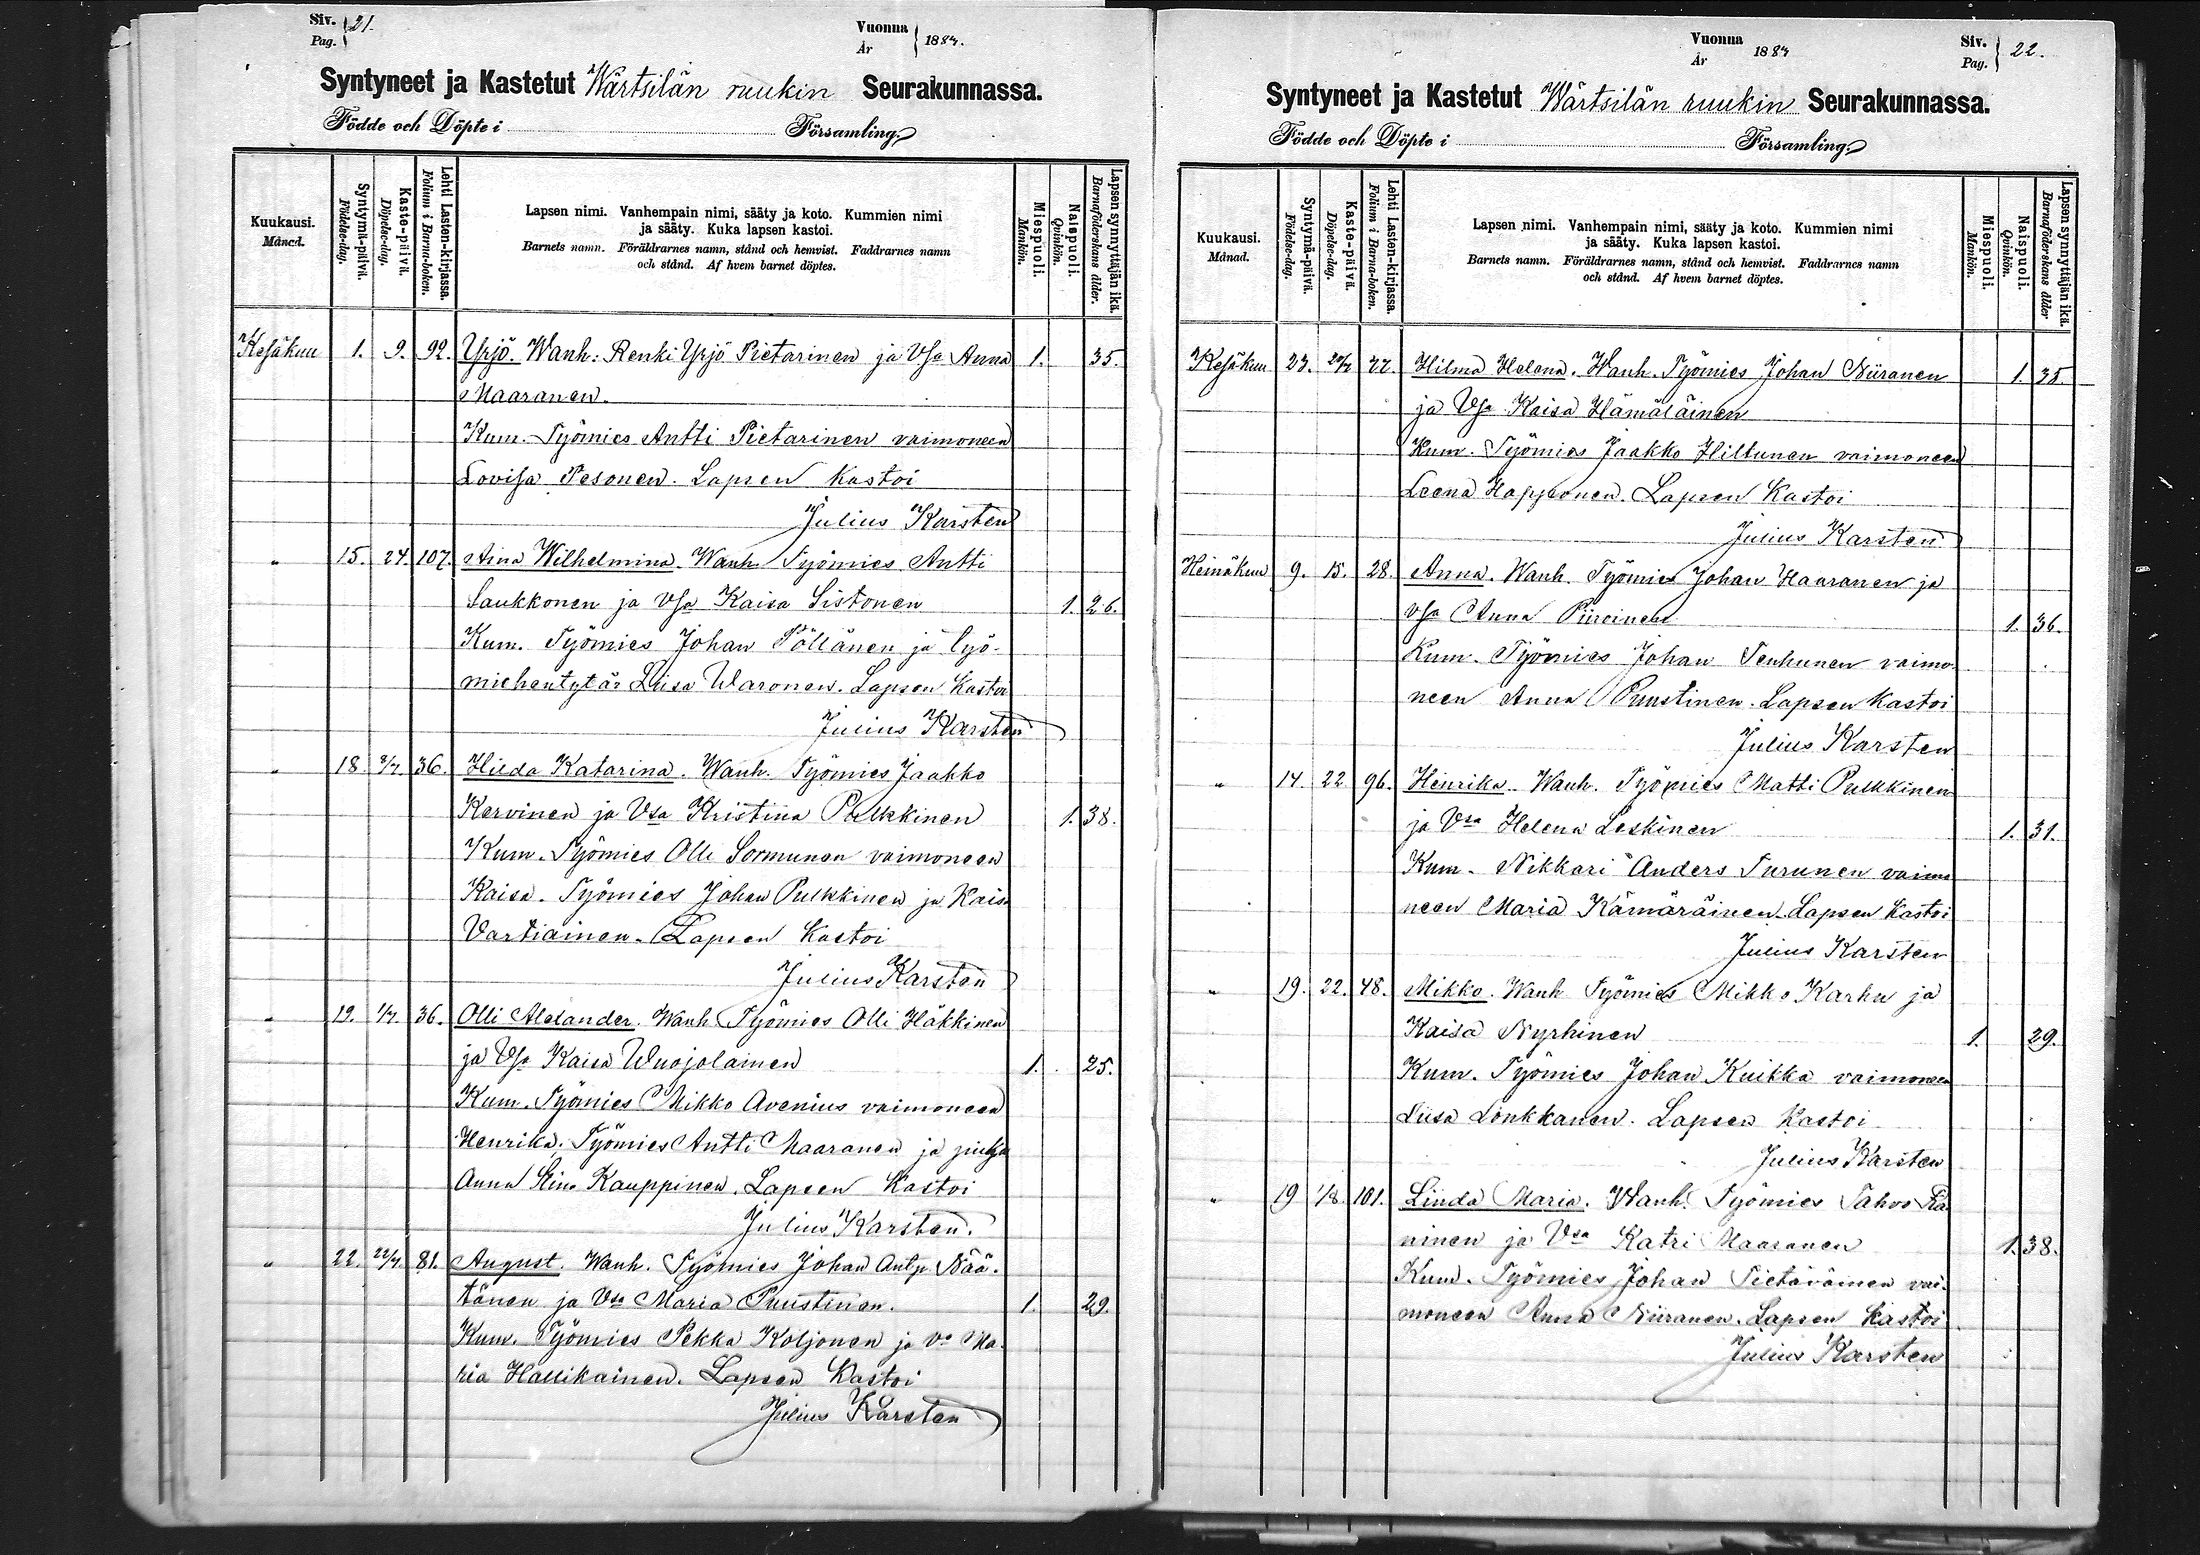 Siv. Pag. 21.
Vuonna År 1884.
Syntyneet ja Kastetut Wärtsilän ruukin Seurakunnassa.
Födde och Döpte i Församling.
Kuukausi. Månad.
Syntymä-päivä. Födelse-dag.
Kaste-päivä. Döpelse-dag.
Lehti Lasten-kirjassa. Folium i Barna-boken.
Lapsen nimi. Vanhempain nimi, sääty ja koto. Kummien nimi
ja sääty. Kuka lapsen kastoi.
Barnets namn. Föräldrarnes namn, stånd och hemvist. Faddrarnes namn
och stånd. Af hvem barnet döptes.
Miespuoli. Mankön.
Naispuoli. Qvinkön.
Lapsen synnyttäjän ikä. Barnaföderskans ålder.
Kesäkuu 1. 9. 92. Yrjö. Wanh: Renki Yrjö Pietarinen ja Vsa Anna 1. 35.
Maaranen.
Kum. Työmies Antti Pietarinen vaimoneen
Lovisa Pesonen. Lapsen Kastoi
Julius Karsten
" 15. 24. 107. Aina Wilhelmina. Wanh. Työmies Antti
Saukkonen ja Vsa Kaisa Sistonen 1. 26.
Kum. Työmies Johan Pöllänen ja työ-
miehentytär Liisa Waronen. Lapsen Kastoi
Julius Karsten
" 18 36. Hilda Katarina. Wanh. Työmies Jaakko
Kervinen ja Vsa Kristina Pulkkinen 1. 38.
Kum. Työmies Olli Sormunen vaimoneen
Kaisa. Työmies Johan Pulkkinen ja Kaisa
Vartiainen. Lapsen Kastoi
Julius Karsten
" 19. 1/7. 36. Olli Aleksander. Wanh. Työmies Olli Häkkinen
ja Vsa Kaisa Wuojolainen 1. 25.
Kum. Työmies Mikko Avenius vaimoneen
Henrika. Työmies Antti Maaranen ja
Anna Stina Kauppinen. Lapsen Kastoi
Julius Karsten.
" 22. 22/7. 81. August. Wanh. Työmies Johan Antp. Nää-
tänen ja Vsa Maria Puustinen. 1. 29.
Kum. Työmies Pekka Koljonen ja Vo Ma-
ria Hallikainen. Lapsen Kastoi
Julius Karsten
Vuonna År 1884
Siv. Pag. 22.
Syntyneet ja Kastetut Wärtsilän ruukin Seurakunnassa.
Födde och Döpte i Församling.
Kuukausi. Månad.
Syntymä-päivä. Födelse-dag.
Kaste-päivä. Döpelse-dag.
Lehti Lasten-kirjassa. Folium i Barna-boken.
Lapsen nimi. Vanhempain nimi, sääty ja koto. Kummien nimi
ja sääty. Kuka lapsen kastoi.
Barnets namn. Föräldrarnes namn, stånd och hemvist. Faddrarnes namn
och stånd. Af hvem barnet döptes.
Miespuoli. Mankön.
Naispuoli. Qvinkön.
Lapsen synnyttäjän ikä. Barnaföderskans ålder
Kesäkuu 23. Hilma Helena. Wanh. Työmies Johan Niiranen 1. 35.
ja Vsa Kaisa Hämäläinen
Kum. Työmies Jaakko Hiltunen vaimoneen
Leena Happonen. Lapsen Kastoi
Julius Karsten
Heinäkuu 9. 15. 28. Anna. Wanh. Työmies Johan Haaranen ja
Vsa Anna Piiroinen 1. 36.
Kum. Työmies Johan Tenhunen vaimo-
neen Anna Puustinen. Lapsen Kastoi
Julius Karsten
" 14. 22 96. Henrika. Wanh. Työmies Matti Pulkkinen
ja Vsa Helena Leskinen 1. 31.
Kum. Nikkari Anders Turunen vaimo
neen Maria Kämäräinen. Lapsen Kastoi
Julius Karsten
" 19. 22. 48. Mikko. Wanh Työmies Mikko Karhu ja
Kaisa Nyrhinen 1. 29.
Kum. Työmies Johan Kuikka vaimoneen
Liisa Lönkkanen. Lapsen Kastoi
Julius Karsten
" 19 1/8. 101. Linda Maria. Wanh. Työmies Tahvo
ninen ja Vsa Katri Maaranen 1. 38.
Kum. Työmies Johan Pietäväinen vai-
moneen Anna Niiranen. Lapsen Kastoi
Julius Karsten